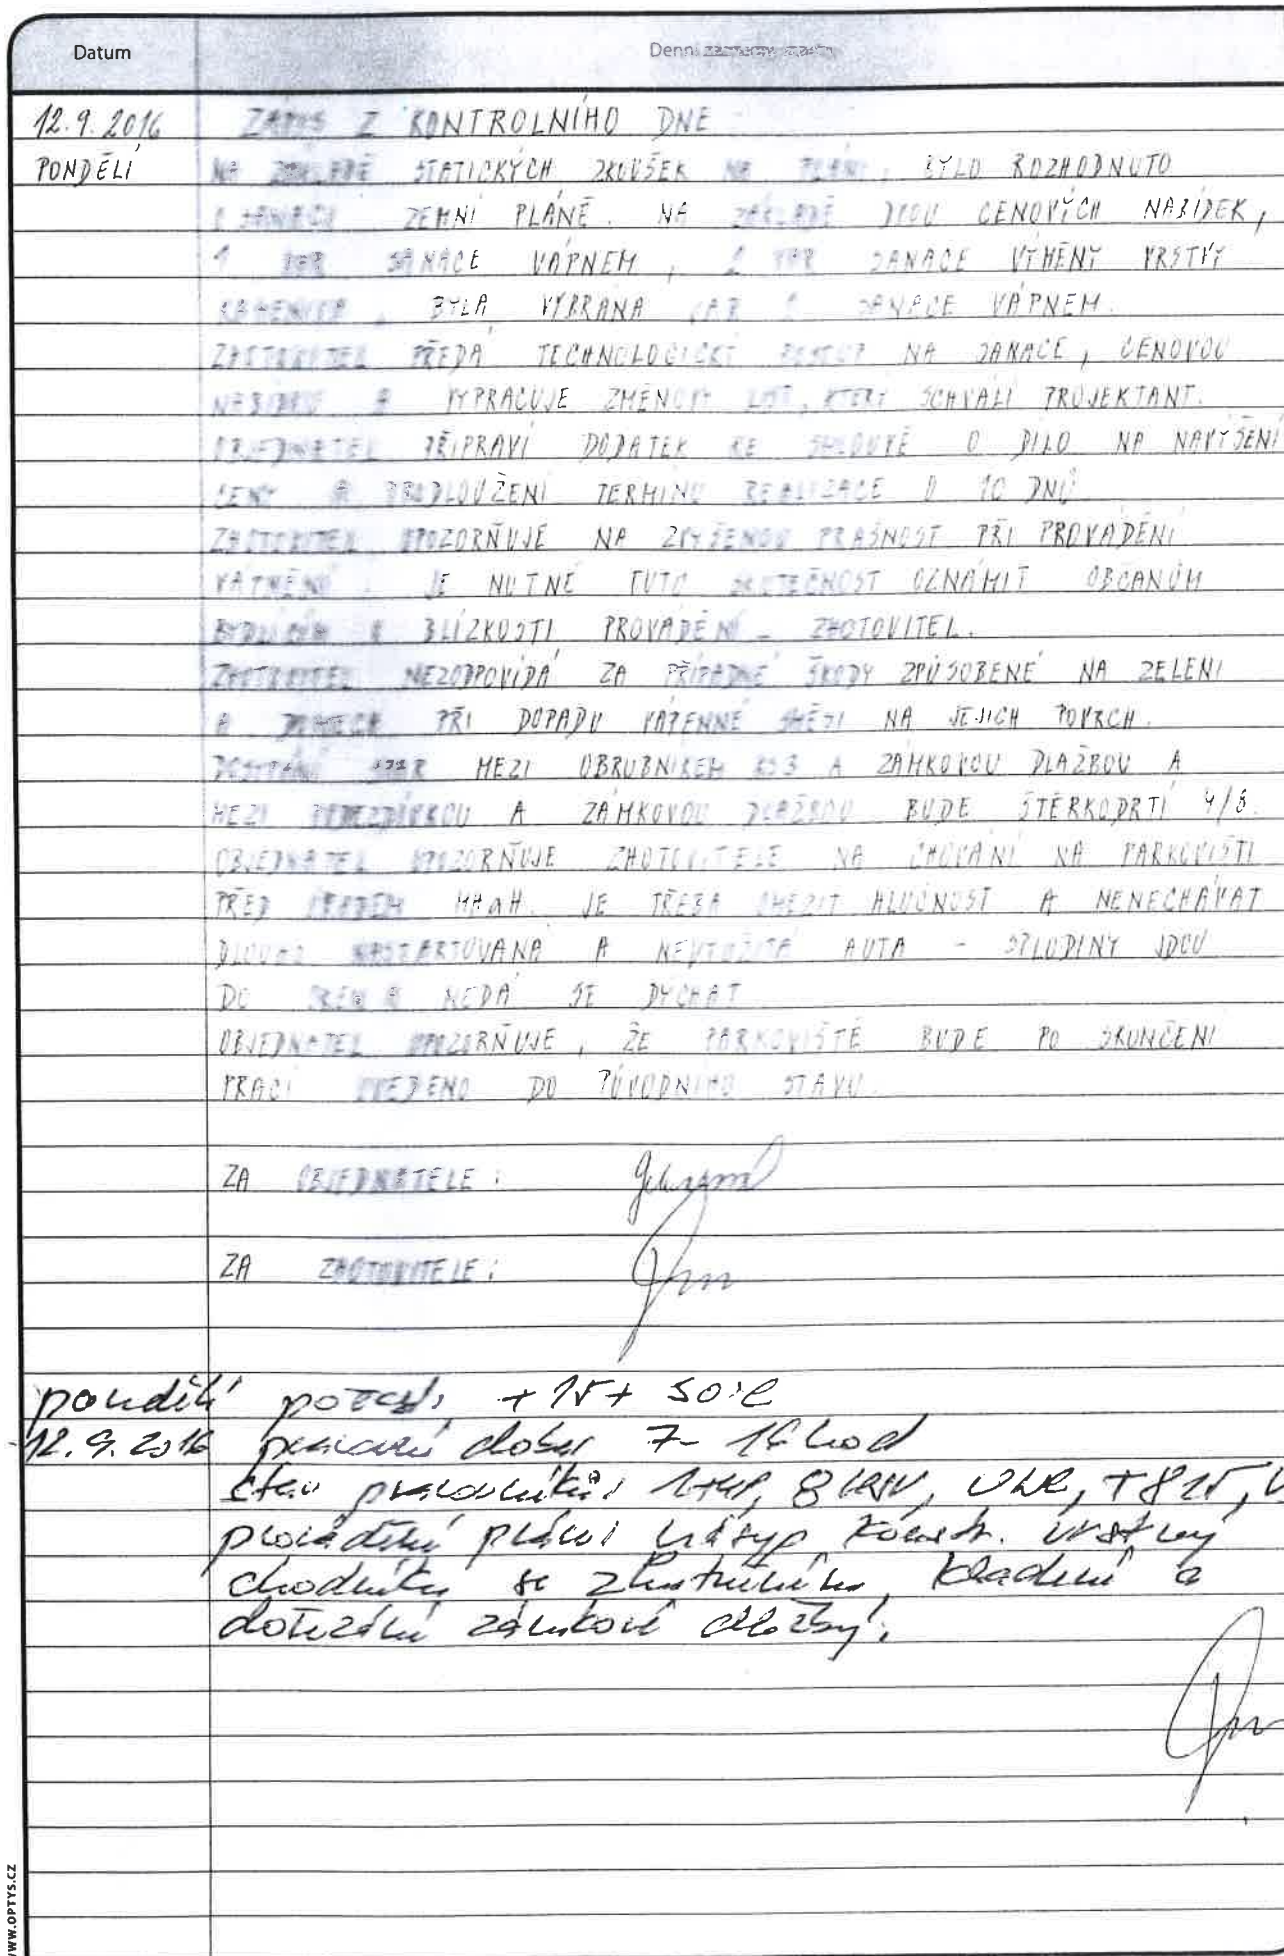 Datum Denní záznamy stavby
12.9.2016 ZÁPIS Z KONTROLNÍHO DNE
PONDĚLÍ NA ZÁKLADĚ STATICKÝCH ZKOUŠEK NA PLÁNI, BYLO ROZHODNUTO
O SANACI ZEMNÍ PLÁNĚ. NA ZÁKLADĚ DVOU CENOVÝCH NABÍDEK,
1 VAR SANACE VÁPNEM, 2 VAR SANACE VÝMĚNY VRSTVY
KAMENIVA, BYLA VYBRÁNA VAR SANACE VÁPNEM.
ZHOTOVITEL PŘEDÁ TECHNOLOGICKÝ POSTUP NA SANACE, CENOVOU
NABÍDKU A VYPRACUJE ZMĚNOVÝ LIST, KTERÝ SCHVÁLÍ PROJEKTANT.
OBJEDNATEL PŘIPRAVÍ DODATEK KE SMLOUVĚ O DÍLO NA NAVÝŠENÍ
CENY A PRODLOUŽENÍ TERMÍNU REALIZACE O 10 DNŮ
ZHOTOVITEL UPOZORŇUJE NA ZVÝŠENOU PRAŠNOST PŘI PROVÁDĚNÍ
VÁPNĚNÍ. JE NUTNÉ TUTO SKUTEČNOST OZNÁMIT OBČANŮM
BYDLÍCÍM V BLÍZKOSTI PROVÁDĚNÍ - ZHOTOVITEL.
ZHOTOVITEL NEZODPOVÍDÁ ZA PŘÍPADNÉ ŠKODY ZPŮSOBENÉ NA ZELENI
A DOMECH PŘI DOPADU VÁPENNÉ SMĚSI NA JEJICH POVRCH.
SPAR MEZI OBRUBNÍKEM KS3 A ZÁMKOVOU DLAŽBOU A
MEZI A ZÁMKOVOU DLAŽBOU BUDE ŠTĚRKODRTÍ 4/8.
OBJEDNATEL UPOZORŇUJE ZHOTOVITELE NA CHOVÁNÍ NA PARKOVIŠTI
PŘED ÚŘADEM MHaH. JE TŘEBA OMEZIT HLUČNOST A NENECHÁVAT
DLOUHO NASTARTOVANÁ A NEVYUŽITÁ AUTA - SPLODINY JDOU
DO OKEN A NEDÁ SE DÝCHAT
OBJEDNATEL UPOZORŇUJE, ŽE PARKOVIŠTĚ BUDE PO SKONČENÍ
PRACÍ UVEDENO DO PŮVODNÍHO STAVU.
ZA OBJEDNATELE:
ZA ZHOTOVITELE:
pondělí počasí
12.9.2016 pracovní doba 7-16 hod
stav pracovníků:
provádění násyp konstr. vrstvy
chodníku se zhutněním, kladení a
dořezání zámkové dlažby.
WWW.OPTYS.CZ